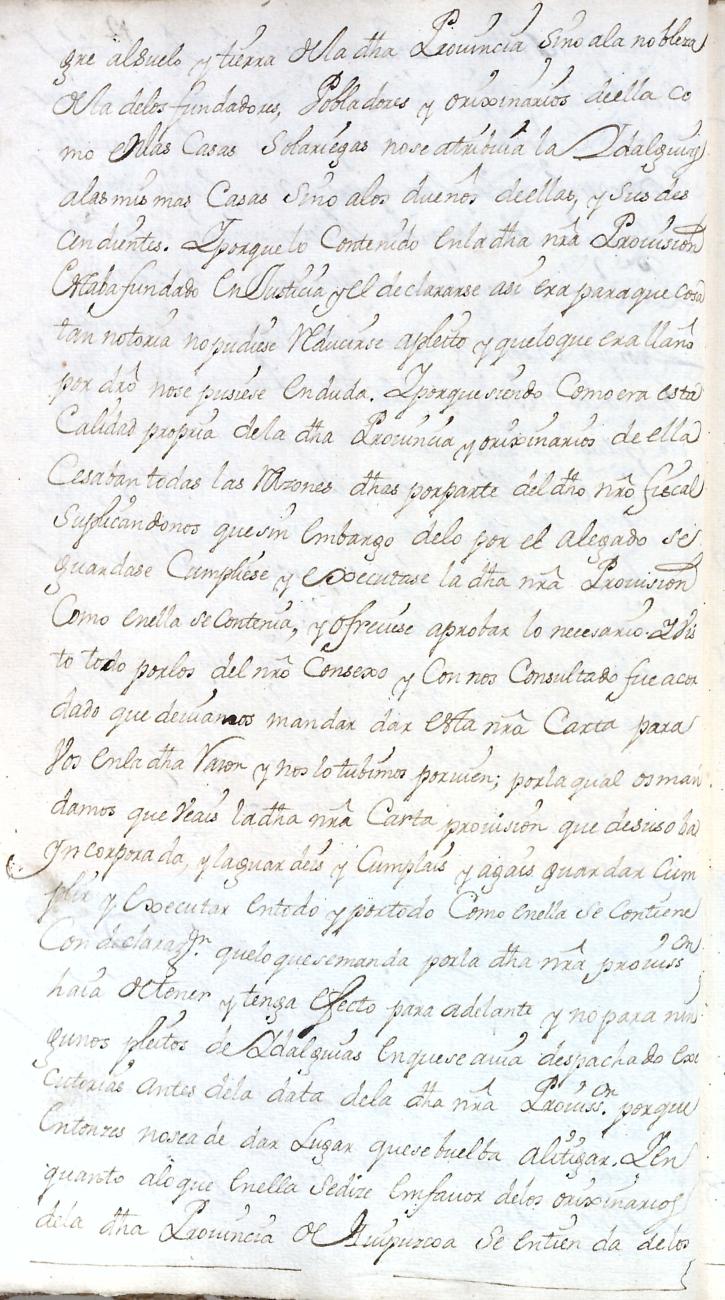 gre alsuelo y tierra dela dha Provincia sino ala nobleza
dela delos fundadores, Pobladores y orixinarios deella co
mo enlas Casas Solariegas nose atribuia la Idalguia
alas mismas Casas Sino alos dueños deellas, y sus des
cendientes. Yporque lo Contenido enla dha nrâ Provision
Estaba fundado En Justicia y el declararse asi era paraque cosa
tan notoria no pudiese Reducirse apleito y queloque era llano
por drô nose pusiese En duda. Yporque siendo Como era esta
Calidad propria dela dha Provincia y orixinarios de ella
Cesaban todas las Razones dhas porparte del dho nrô fiscal
Suplicandonos que sin embargo delo por el alegado se
guardase Cumpliese y Executase la dha nrâ Provision
Como enella se Contenia, y ofreciese aprobar lo necesario. Y Vis
to todo porlos del nrô Consexo y Con nos Consultado fue acor
dado que deviamos mandar dar esta nrâ Carta para
Vos enla dha Razon y nos lo tubimos porvien; porla qual os man
damos que Veais la dha nrâ Carta provision que desuso ba
Yncorporada, y laguardeis y Cumplais y agais guardar Cum
plir y Executar entodo y portodo Como enella se Contiene
Con declaraz.n queloquesemanda porla dha nrâ proviss.on
haia detener y tenga efecto para adelante y no para nin
gunos pleitos de Idalguias enquese avia despachado exe
cutorias antes dela data dela dha nrâ Proviss.on porque
Entonzes nosea de dar Lugar quese buelba alitigar. Y En
quanto alo que enella sedize emfavor delos orixinarios
dela dha Provincia de Guipuzcoa se entienda delos